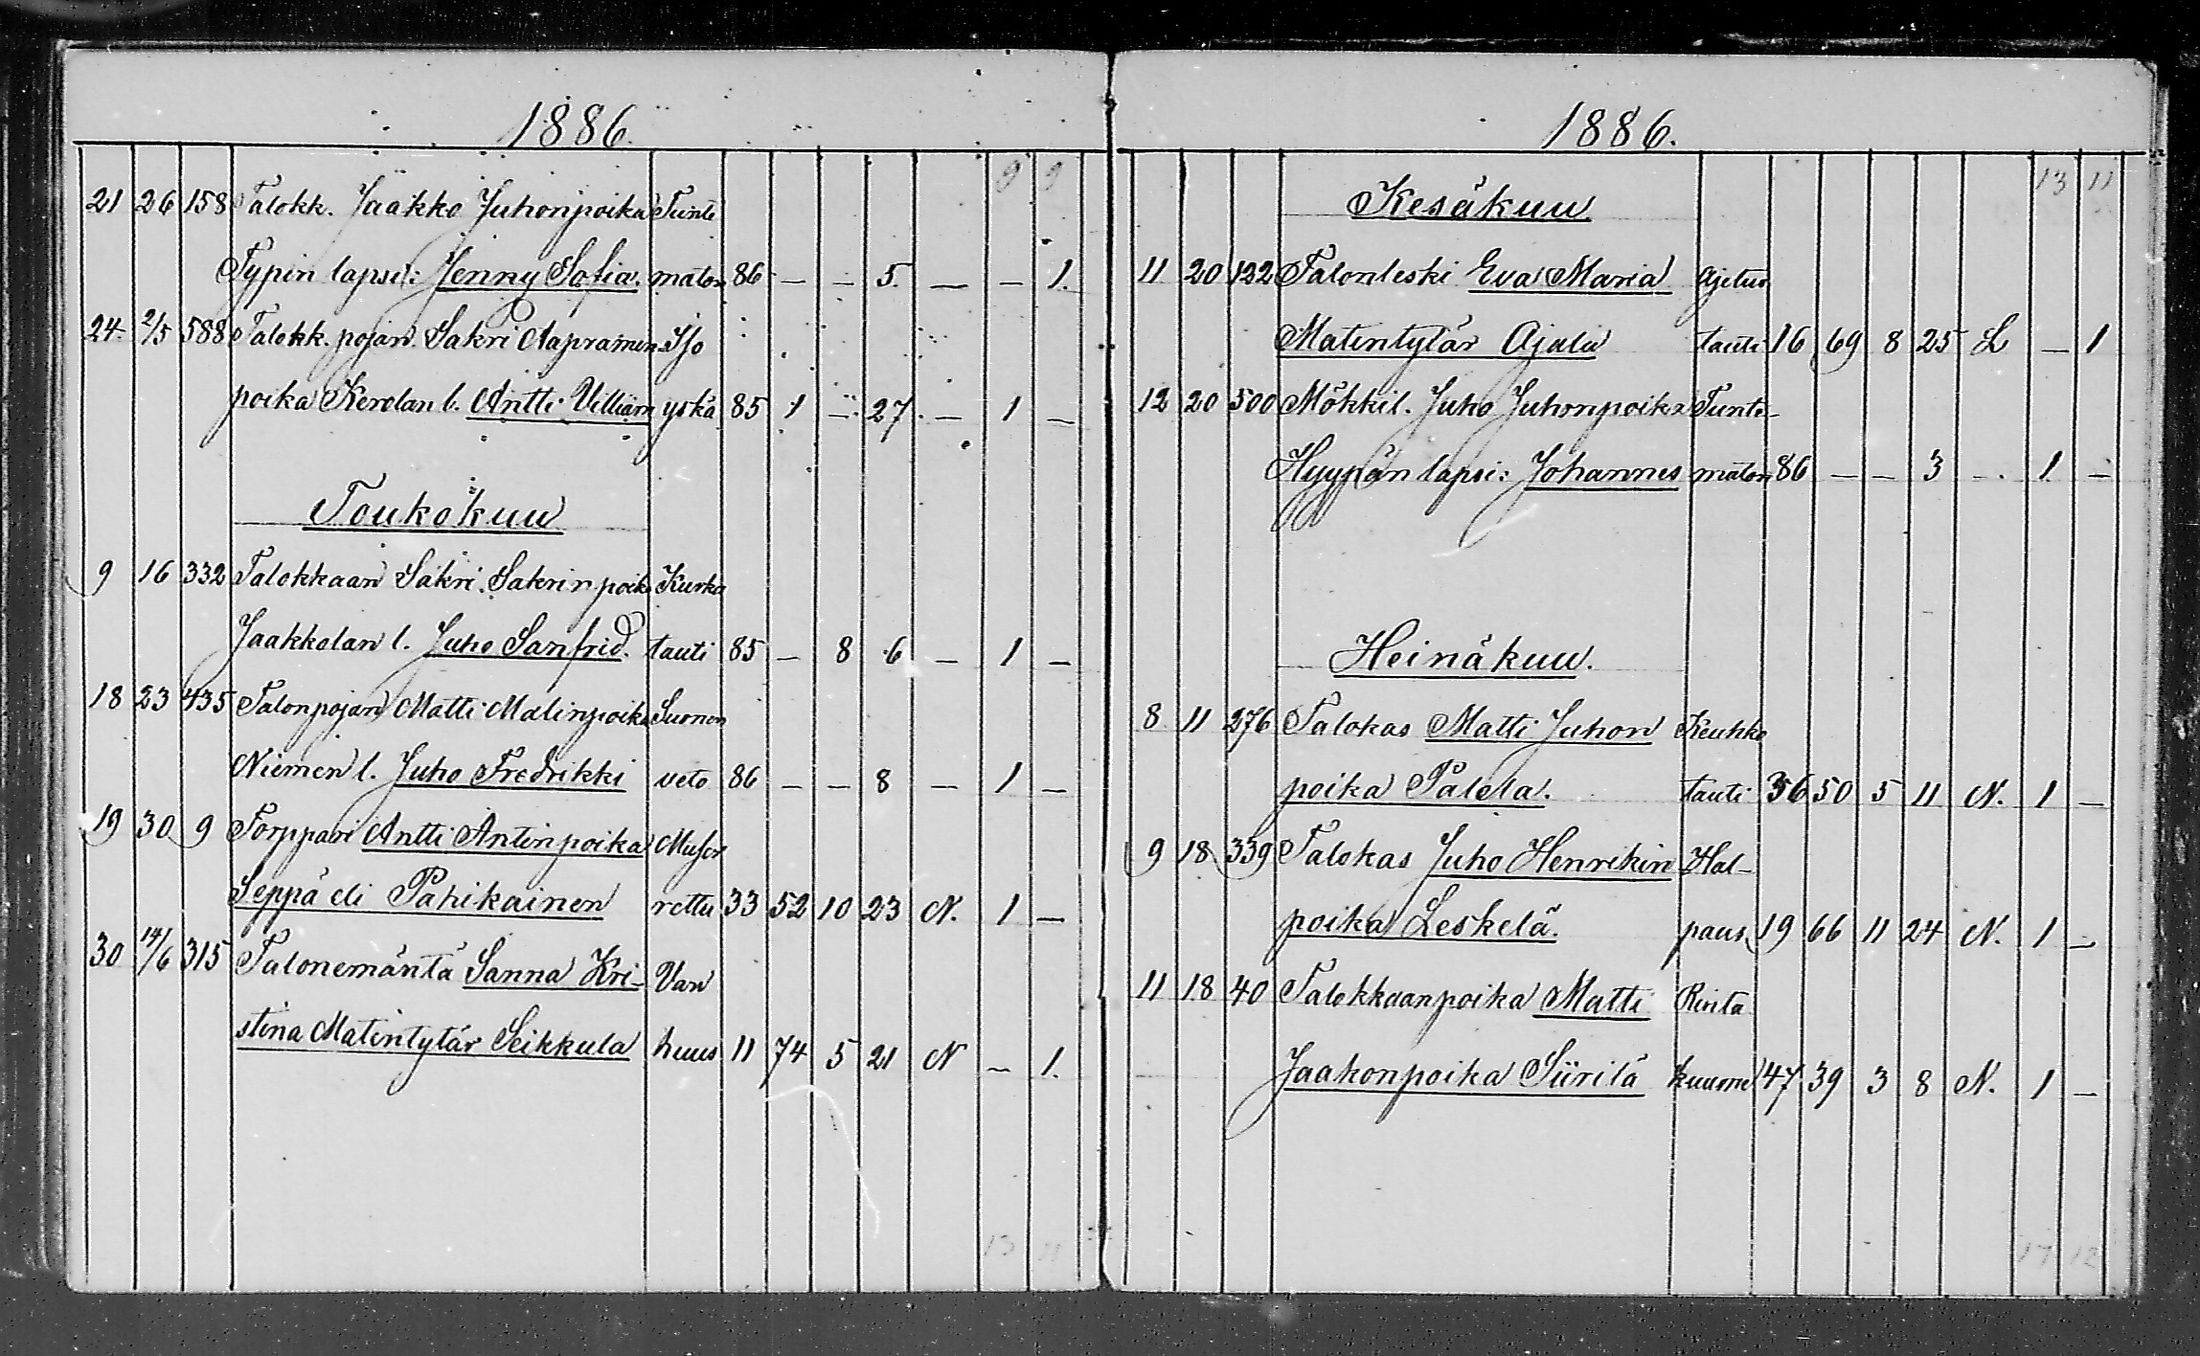 1886.
9 9
21 26 158 Talokk. Jaakko Juhonpoika Tunte
Typin lapsi: Jenny Sofia. maton 86 — — 5. — — 1.
24. 2/5 588 Talokk. pojan Sakri Aapramin Iso
poika Kerolan l. Antti Villiam yskä 85 1 — 27. — 1 —
Toukokuu
9 16 332 Talokkaan Sakri Sakrinpoik Kurko
Jaakkolan l. Juho Sanfrid. tauti 85 — 8 6 — 1 —
18 23 435 Talonpojan Matti Matinpoika Suonen
Niemen l. Juho Fredrikki veto 86 — — 8 — 1 —
19 30 9 Torppari Antti Antinpoika
Seppä eli Pahikainen rettu 33 52 10 23 N. 1 —
30 14/6 315 Talonemäntä Sanna Kri- Van
stina Matintytär Seikkula huus 11 74 5 21 N — 1.
13 11
1886.
13 11
Kesäkuu
11 20 122 Talonleski Eva Maria Ajetus
Matintytär Ajala tauti 16 69 8 25 L — 1
12 20 500 Mökkil. Juho Juhonpoika Tunte-
Hyypän lapsi: Johannes maton 86 — — 3 — 1. —
Heinäkuu.
8 11 276 Talokas Matti Juhon Keuhko
poika Palola. tauti 36 50 5 11 N. 1 —
9 18 339 Talokas Juho Henrikin Hal-
poika Leskelä. paus 19 66 11 24 N. 1 —
11 18 40 Talokkaanpoika Matti Rinta
Jaakonpoika Siirilä kuume 47 39 3 8 N. 1 —
17 12